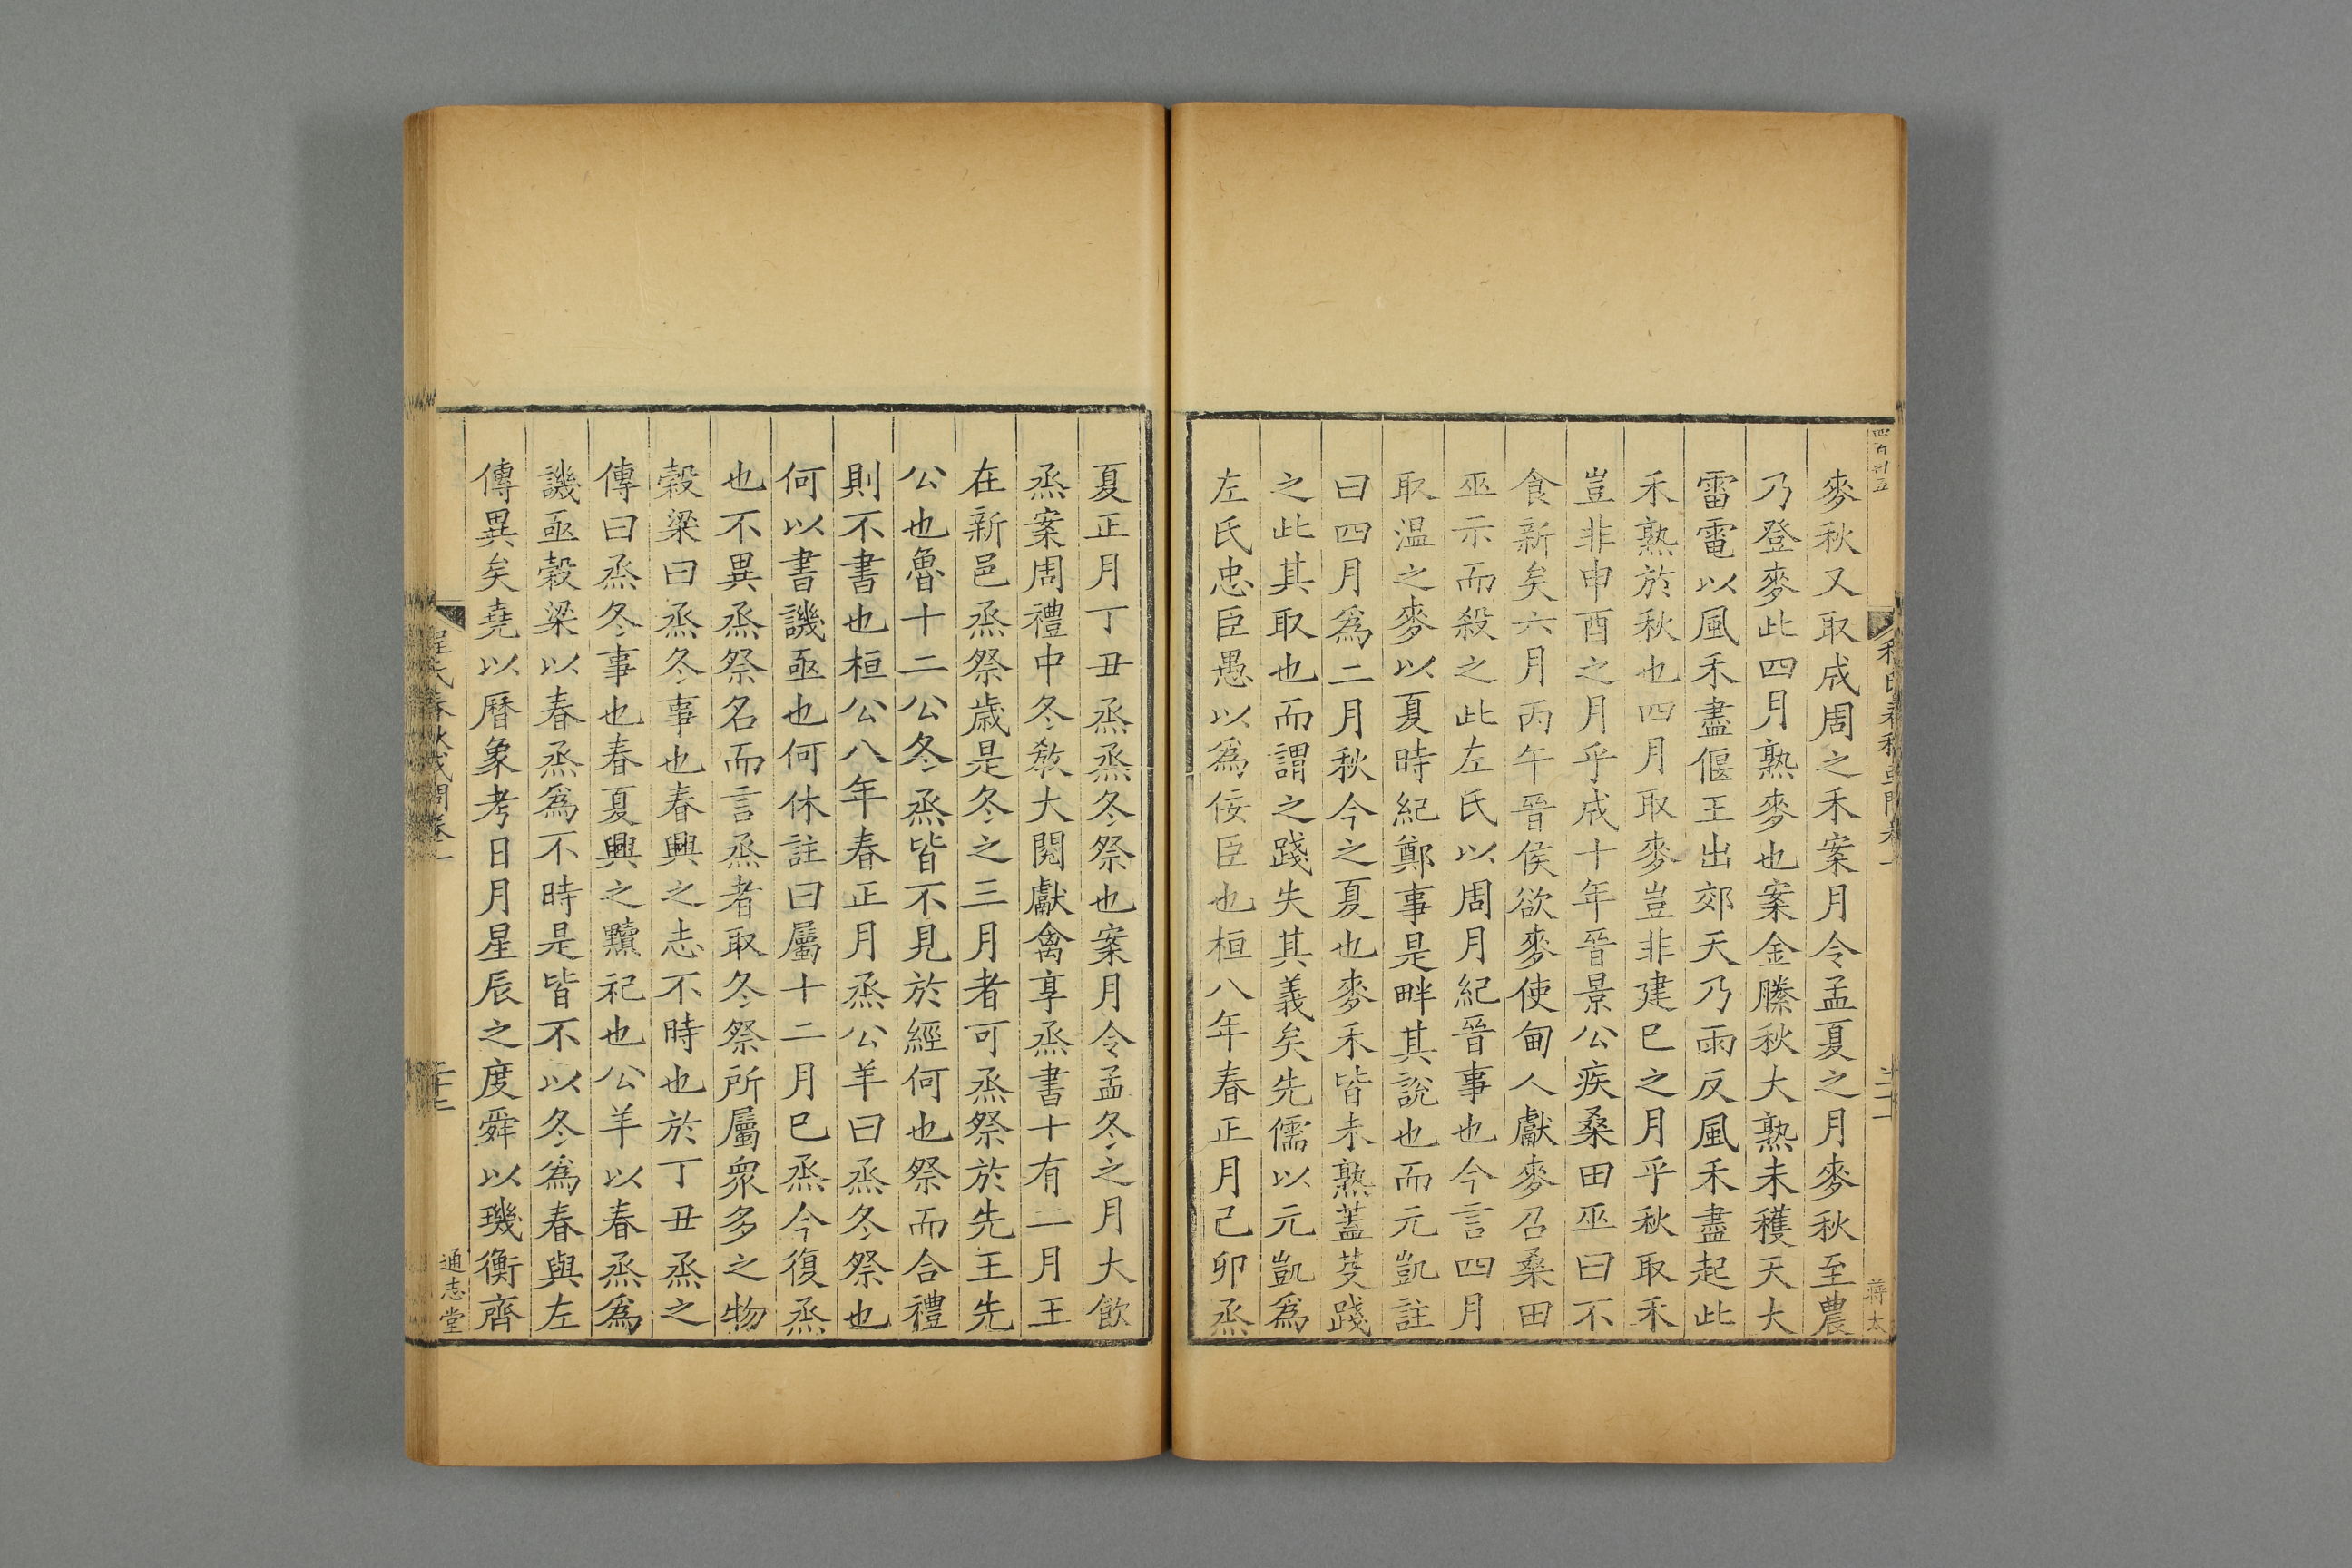 麥秋又取成周之禾案月令孟夏之月麥秋至農
乃登麥此四月熟麥也案金縢秋大熟未穫天大
雷電以風禾盡偃王出郊天乃雨反風禾盡起此
禾熟於秋也四月取麥豈非建巳之月乎秋取禾
豈非申酉之月乎成十年晉景公疾桑田巫曰不
食新矣六月丙午晉侯欲麥使甸人獻麥召桑田
巫示而殺之此左氏以周月紀晉事也今言四月
取温之麥以夏時紀鄭事是畔其說也而元凱註
曰四月為二月秋今之夏也麥禾皆未熟蓋芟踐
之此其取也而謂之踐失其義矣先儒以元凱為
左氏忠臣愚以為佞臣也桓八年春正月己卯烝
夏正月丁丑烝烝冬祭也案月令孟冬之月大飲
烝案周禮中冬敎大閱獻禽享烝書十有一月王
在新邑烝祭歲是冬之三月者可烝祭於先王先
公也魯十二公冬烝皆不見於經何也祭而合禮
則不書也桓公八年春正月烝公羊曰烝冬祭也
何以書譏亟也何休註曰屬十二月巳烝今復烝
也不異烝祭名而言烝者取冬祭所屬衆多之物
榖梁曰烝冬事也春興之志不時也於丁丑烝之
傳曰烝冬事也春夏興之黷祀也公羊以春烝為
譏亟榖梁以春烝為不時是皆不以冬為春與左
傳異矣堯以曆象考日月星辰之度舜以璣衡齊
通志堂